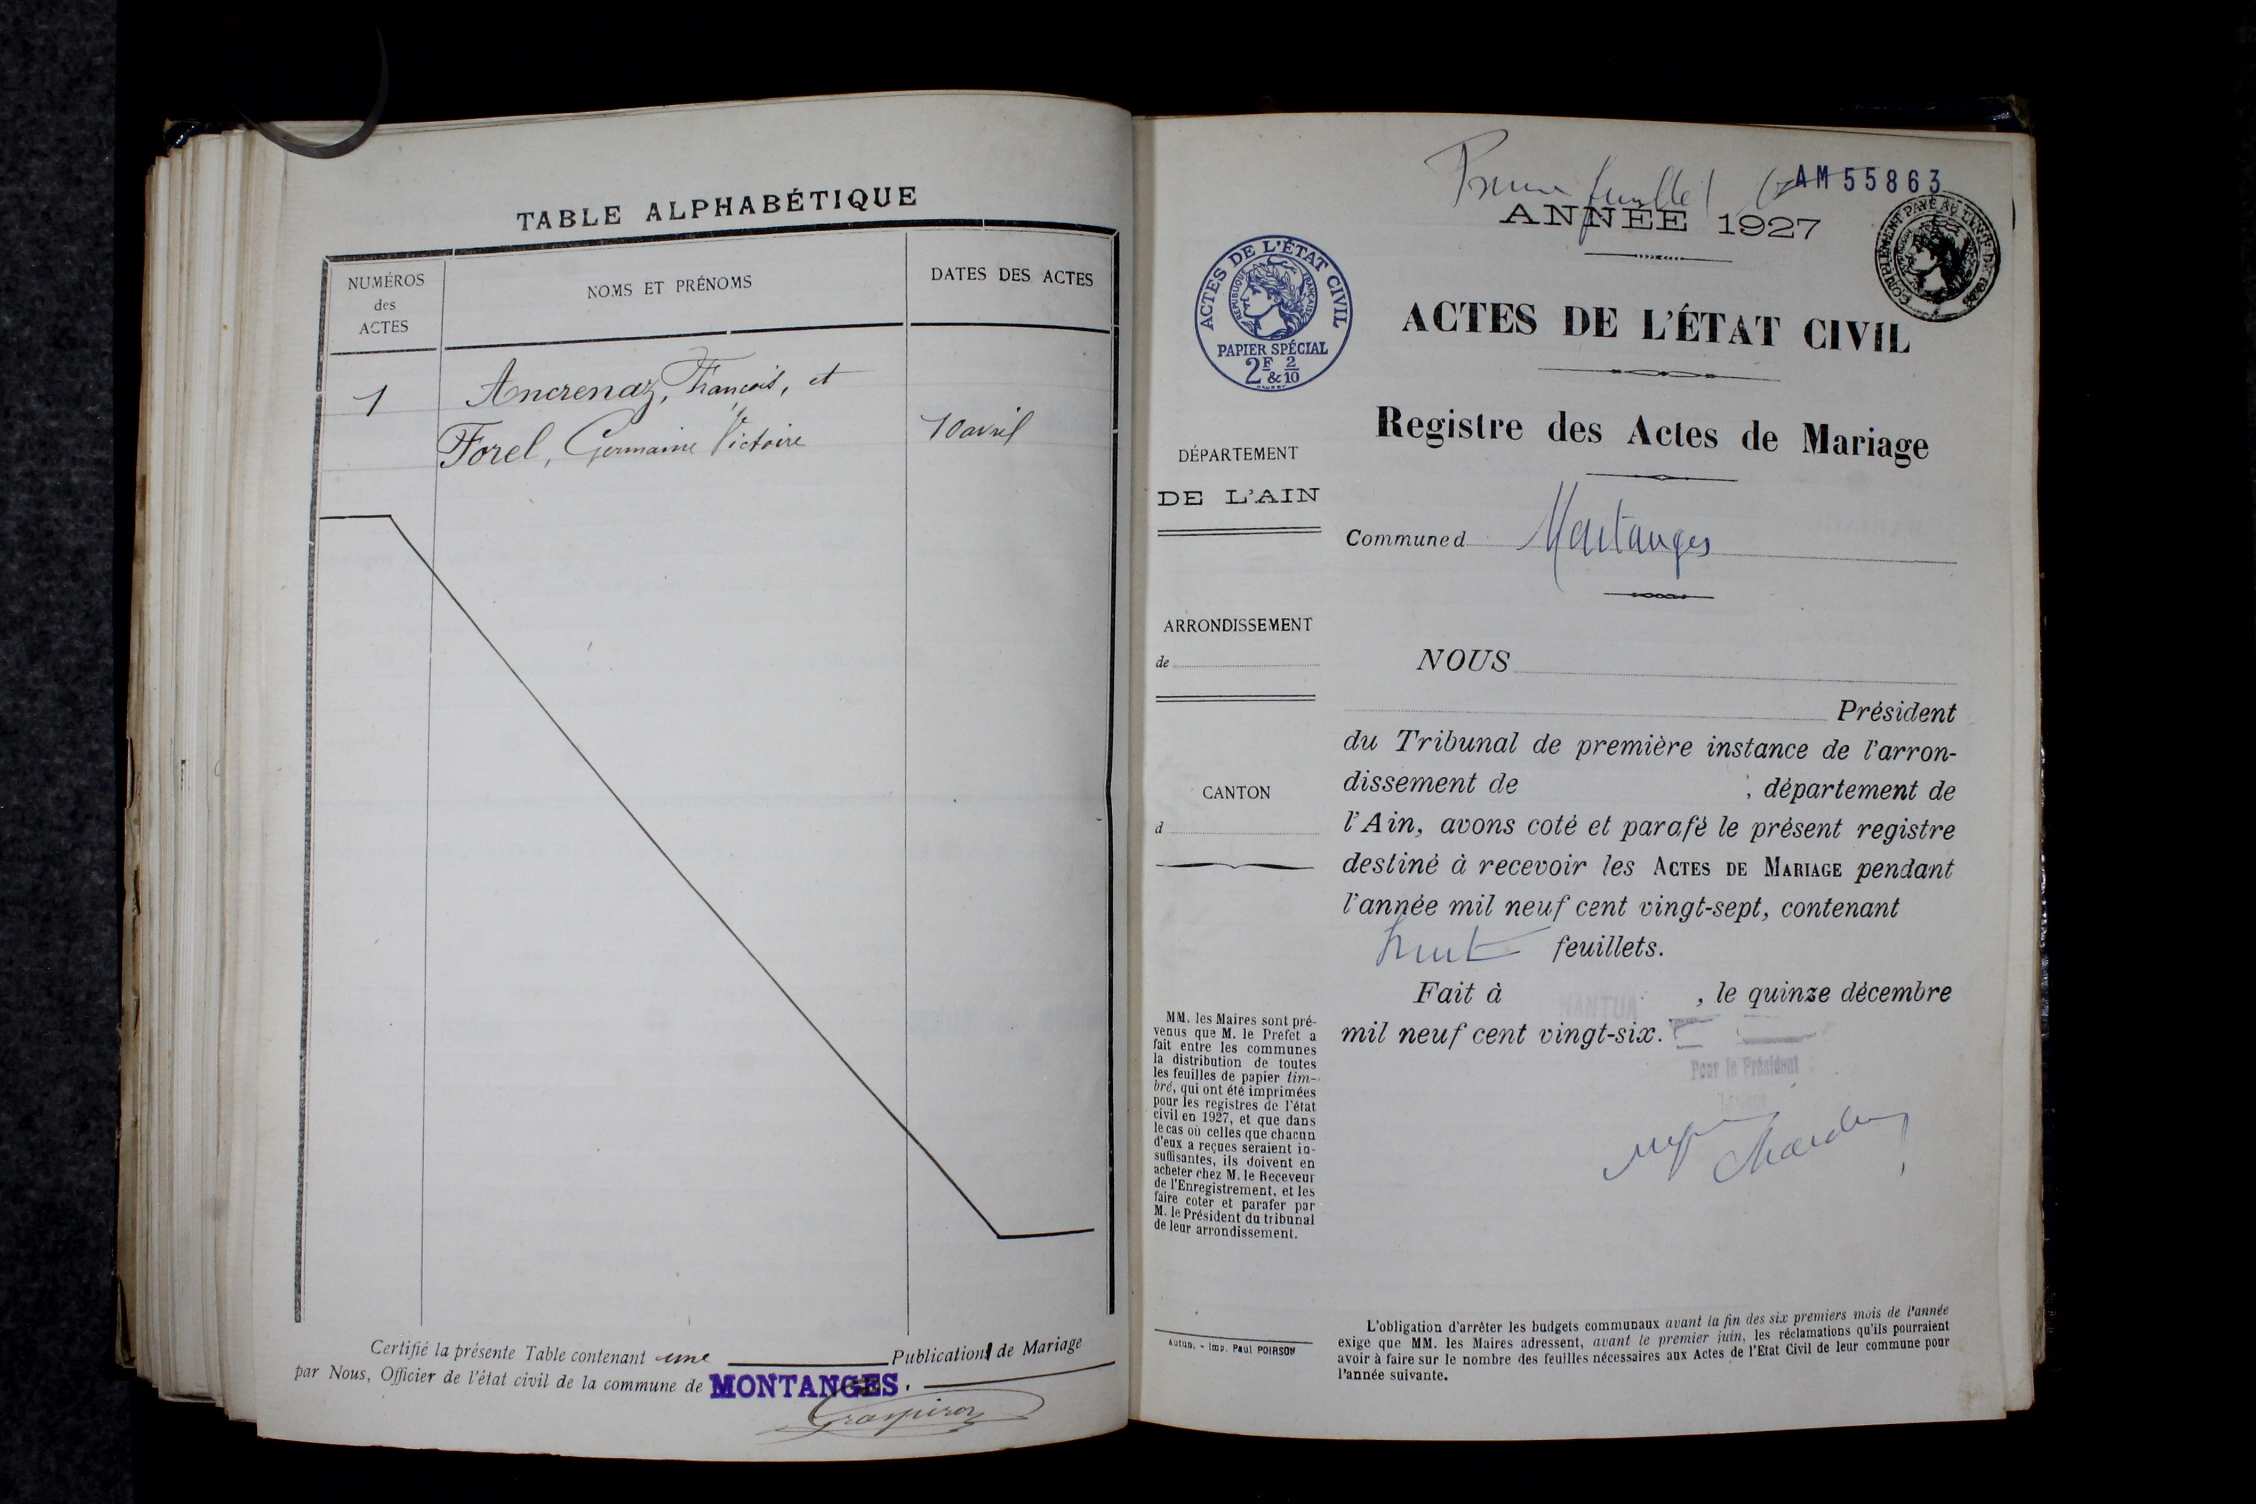 TABLE ALPHABÉTIQUE
NUMÉROS
des
ACTES
NOMS ET PRÉNOMS
DATES DES ACTES
1
Ancrenaz, François, et
Forel, Germaine Victoire
10 avril
Certifié la présente Table contenant une Publication de Mariage
par Nous, Officier de l'état civil de la commune de MONTANGES.
AM 55863
ANNÉE 1927
ACTES DE L'ÉTAT CIVIL
RÉPUBLIQUE FRANÇAISE
PAPIER SPÉCIAL
2F & 2/10
ACTES DE L'ÉTAT CIVIL
Registre des Actes de Mariage
DÉPARTEMENT
DE L'AIN
Commune d Montanges
ARRONDISSEMENT
de
CANTON
d
MM. les Maires sont pré-
venus que M. le Préfet a
fait entre les communes
la distribution de toutes
les feuilles de papier tim-
bré, qui ont été imprimées
pour les registres de l'état
civil en 1927, et que dans
le cas où celles que chacun
d'eux a reçues seraient in-
suffisantes, ils doivent en
acheter chez M. le Receveur
de l'Enregistrement, et les
faire coter et parafer par
M. le Président du tribunal
de leur arrondissement.
Autun. - Imp. Paul POIRSON
NOUS
Président
du Tribunal de première instance de l'arron-
dissement de , département de
l'Ain, avons coté et parafé le présent registre
destiné à recevoir les ACTES DE MARIAGE pendant
l'année mil neuf cent vingt-sept, contenant
huit feuillets.
Fait à NANTUA , le quinze décembre
mil neuf cent vingt-six.
Pour le Président
L'obligation d'arrêter les budgets communaux avant la fin des six premiers mois de l'année
exige que MM. les Maires adressent, avant le premier juin, les réclamations qu'ils pourraient
avoir à faire sur le nombre des feuilles nécessaires aux Actes de l'Etat Civil de leur commune pour
l'année suivante.